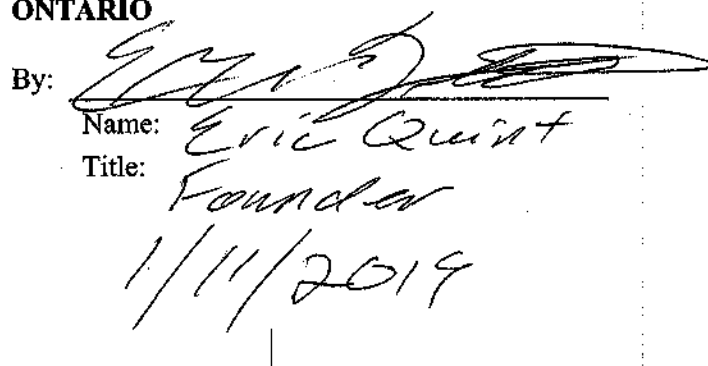 ONTARIO
By:
Name: Eric Quint
Title:
Founder
1/11/2019